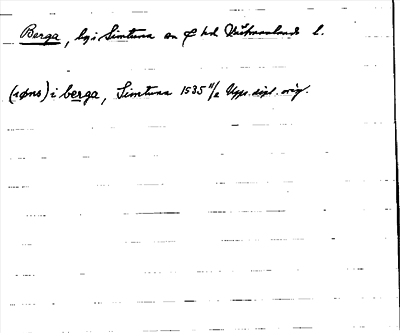 Berga, by i Simtuna sn o hd Västmanlands l.
(iøns) i berga, Simtuna 1535 11/2 Upps. dipl. orig.